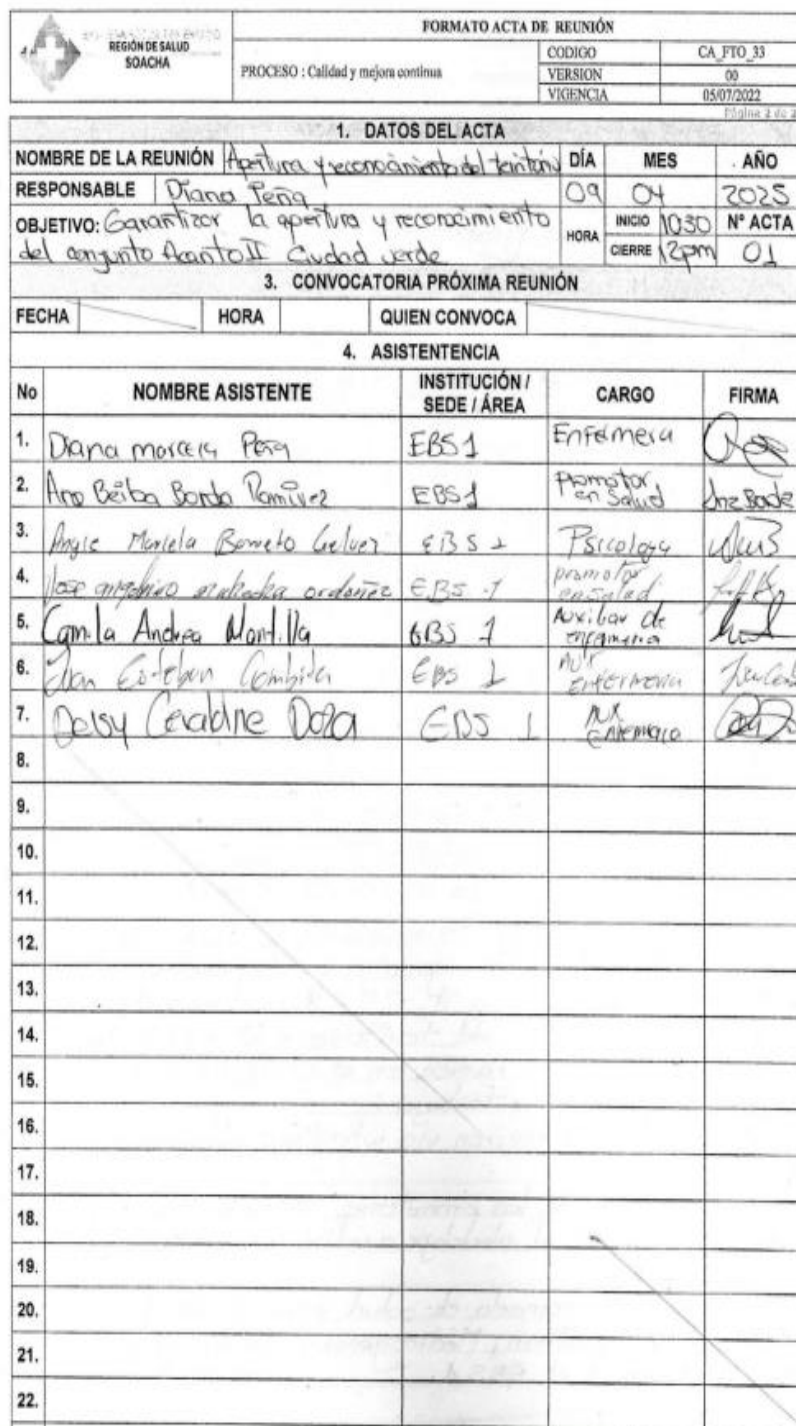 REGIÓN DE SALUD
SOACHA
FORMATO ACTA DE REUNIÓN
PROCESO : Calidad y mejora continua
CODIGO CA_FTO_33
VERSION 00
VIGENCIA 05/07/2022
Página 2 de 2
1. DATOS DEL ACTA
NOMBRE DE LA REUNIÓN Apertura y reconocimiento del territorio DÍA MES AÑO
RESPONSABLE Diana Peña 09 04 2025
OBJETIVO: Garantizar la apertura y reconocimiento HORA INICIO 1030 N° ACTA
del conjunto Acanto II Ciudad verde CIERRE 12pm 01
3. CONVOCATORIA PRÓXIMA REUNIÓN
FECHA HORA QUIEN CONVOCA
4. ASISTENTENCIA
No NOMBRE ASISTENTE INSTITUCIÓN / SEDE / ÁREA CARGO FIRMA
1. Diana marcela Peña EBS 1 Enfermera
2. Ana Beiba Ramirez EBS 1 Promotor en Salud
3. Angie Mariela EBS 1 Psicologa
4. Jose ordoñez EBS 1 promotor en salud
5. Camila Andrea Montilla EBS 1 Auxiliar de enfermeria
6. Esteban Combita EBS 1 Aux enfermeria
7. Deisy EBS 1 Aux
8.
9.
10.
11.
12.
13.
14.
15.
16.
17.
18.
19.
20.
21.
22.